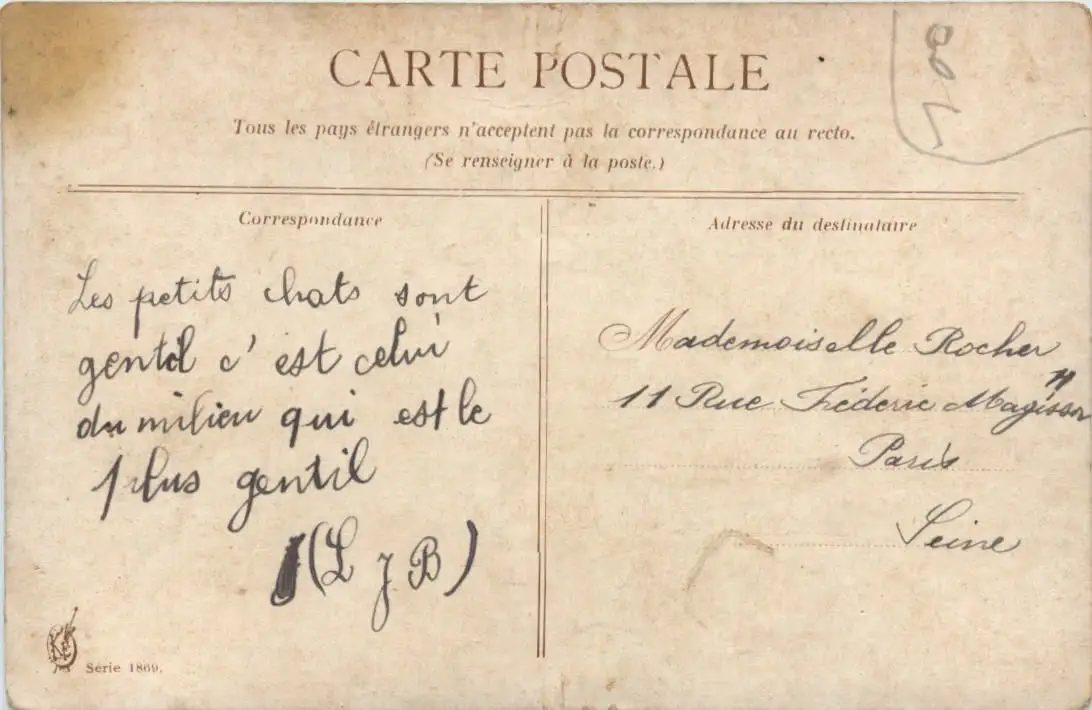 CARTE POSTALE
Tous les pays étrangers n'acceptent pas la correspondance au recto.
(Se renseigner à la poste.)
Correspondance
Adresse du destinataire
Les petits chats sont
gentil c'est celui
du milieu qui est le
plus gentil
(L J B)
Mademoiselle Rocher
11 Rue Fréderic
Paris
Seine
Série 1869.